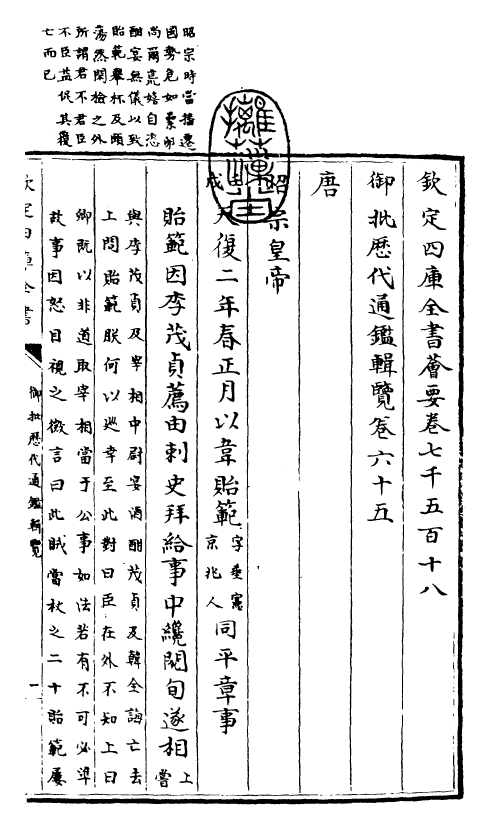 欽定四庫全書薈要卷七千五百十八
御批歷代通鑑輯覽卷六十五
唐
昭宗皇帝
戌天復二年春正月以韋貽範
字垂憲
京兆人
同平章事
貽範因李茂貞薦由刺史拜給事中纔閱旬遂相
上
嘗
與李茂貞及宰相中尉宴酒酣茂貞及韓全誨亡去
上問貽範朕何以巡幸至此對曰臣在外不知上曰
卿既以非道取宰相當于公事如法若有不可必準
故事因怒目視之微言曰此賊當杖之二十貽範屢
欽定四庫全書
御批歷代通鑑輯覽
一
昭宗時當播遷
國勢危如累卵
尚爾荒嬉自恣
酣宴無儀以致
貽範舉杯及頤
蕩然閑檢之外
所謂君不君臣
不臣益促其覆
亡而已